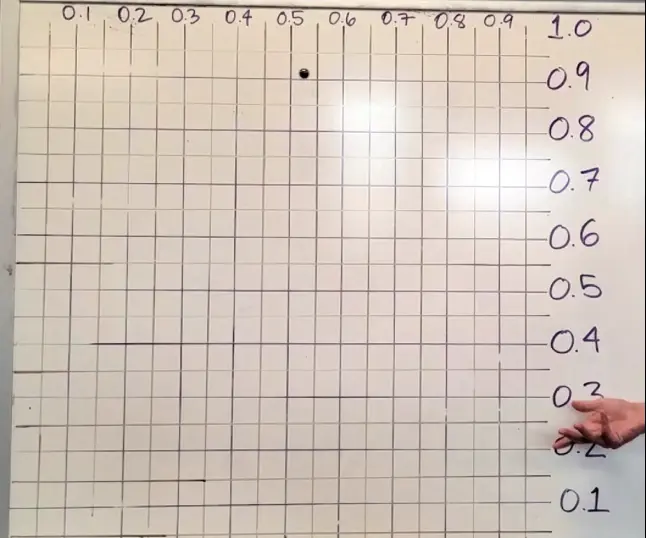 0.1 0.2 0.3 0.4 0.5 0.6 0.7 0.8 0.9 1.0
0.9
0.8
0.7
0.6
0.5
0.4
0.3
0.2
0.1